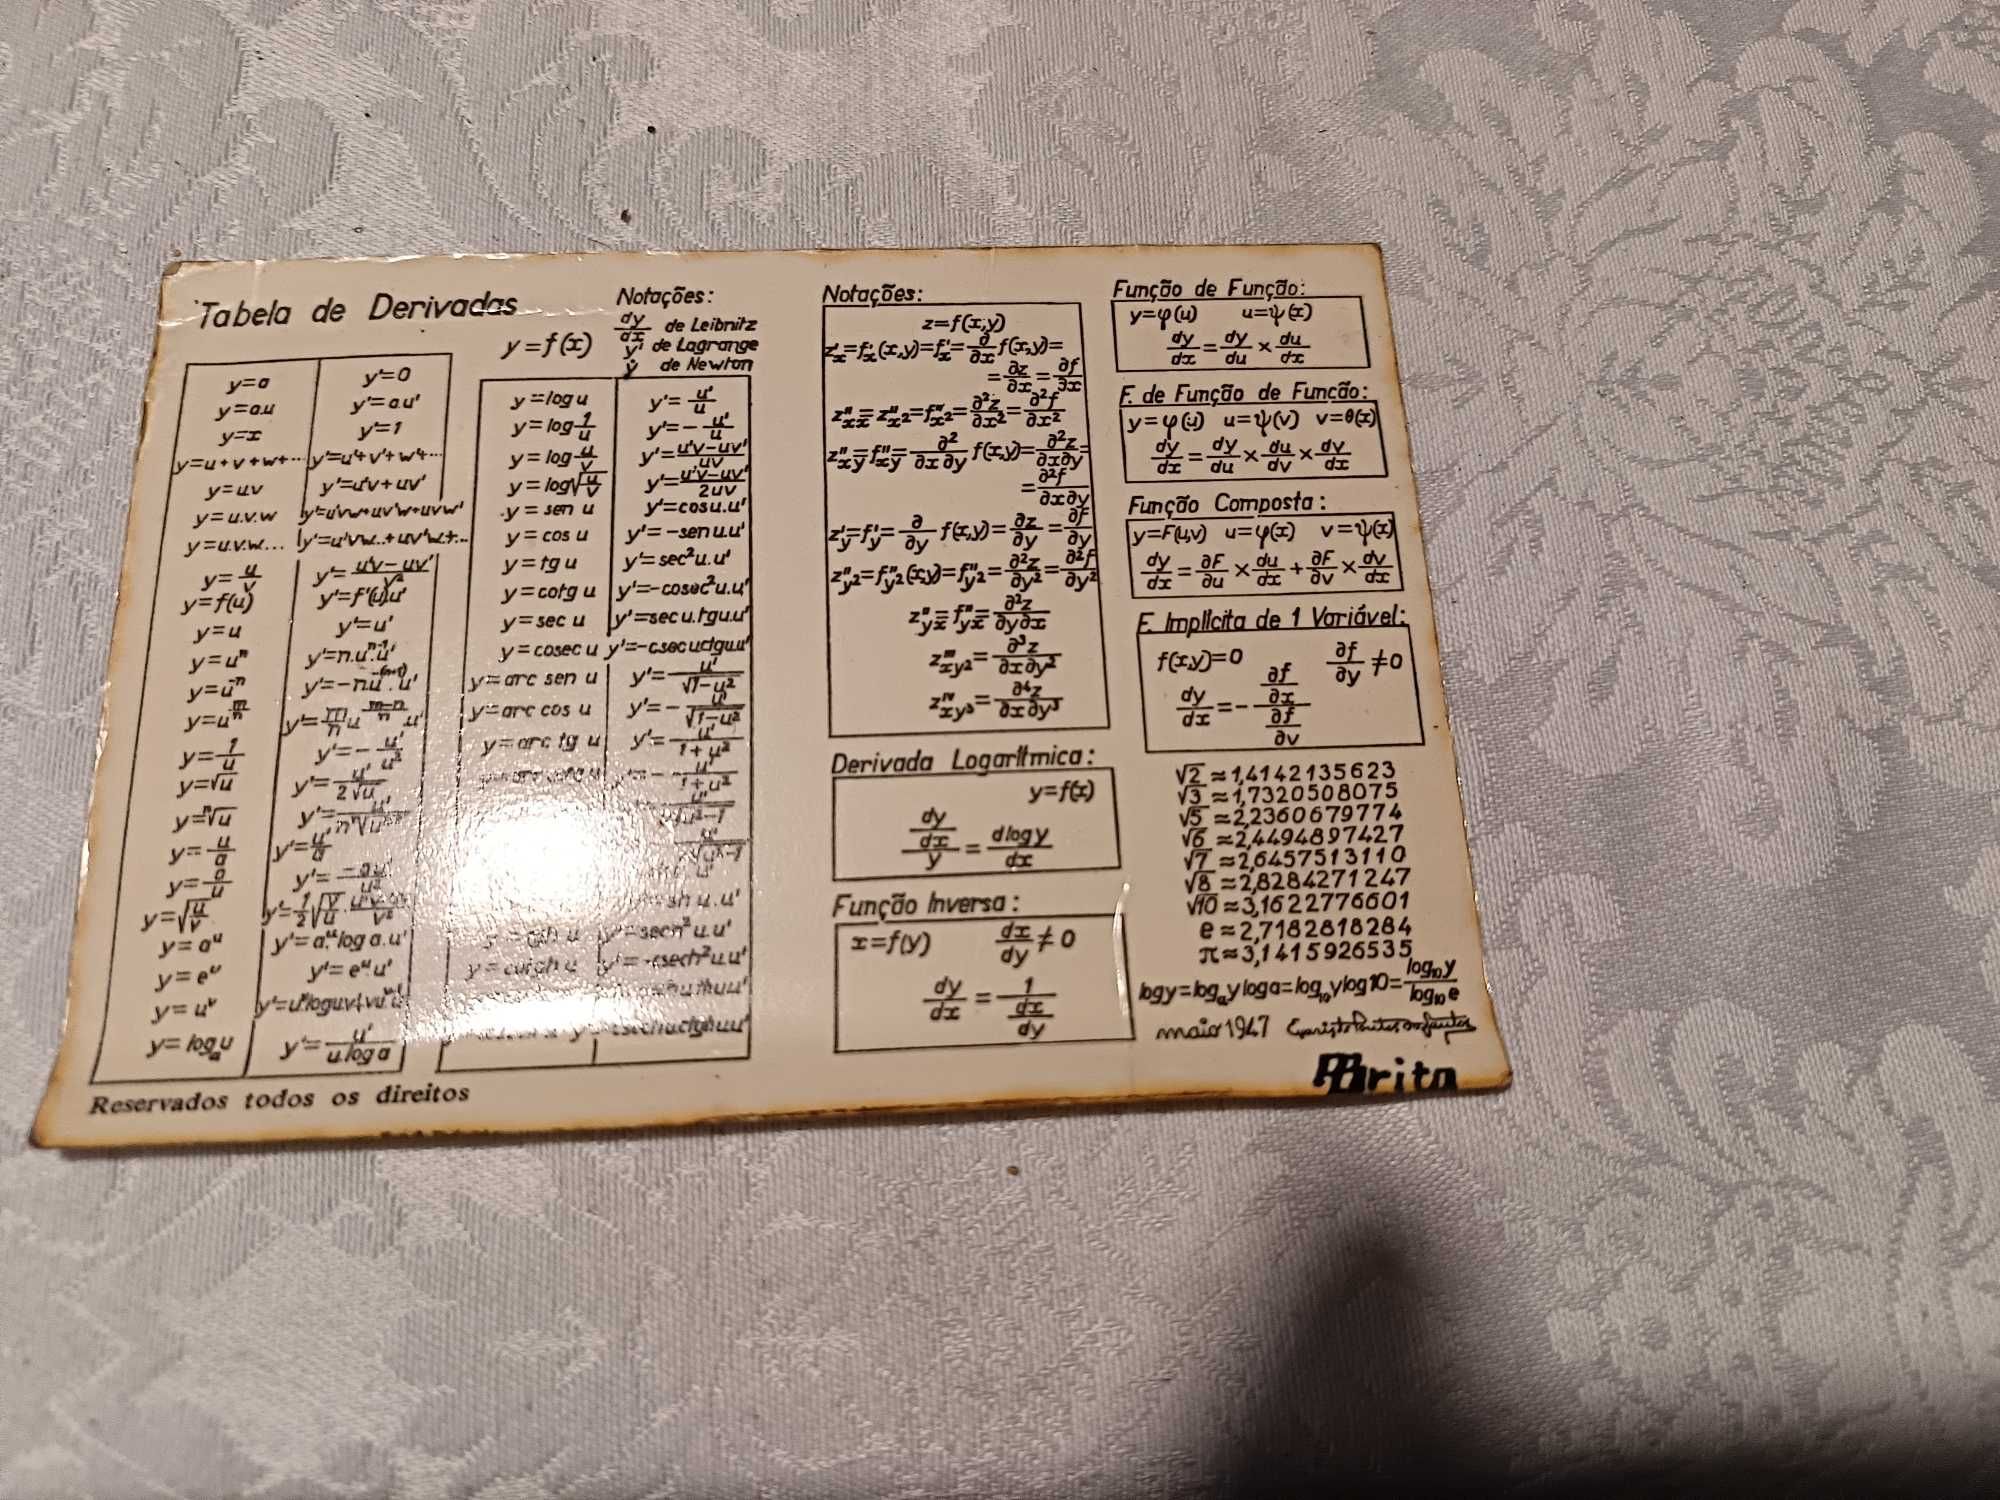 Tabela de Derivadas
y=a y'=0
y=a.u y'=a.u'
y=x y'=1
y=u+v+w+··· y'=u'+v'+w'+···
y=u.v y'=u'v+uv'
y=u.v.w y'=u'vw+uv'w+uvw'
y=u.v.w... y'=u'vw..+uv'w+...
y=u/v y'=(u'v-uv')/v²
y=f(u) y'=f'(u)u'
y=u y'=u'
y=uⁿ y'=n.uⁿ⁻¹.u'
y=u⁻ⁿ y'=-n.u⁻⁽ⁿ⁺¹⁾.u'
y=u^(m/n) y'=(m/n)u^((m-n)/n).u'
y=1/u y'=-u'/u²
y=√u y'=u'/(2√u)
y=ⁿ√u
y=u/a y'=u'/a
y=a/u y'=-au'/u²
y=√(u/v)
y=aᵘ y'=aᵘ.log a.u'
y=eᵘ y'=eᵘ.u'
y=uᵛ
y=logₐu y'=u'/(u.log a)
Reservados todos os direitos
y=f(x)
Notações:
dy/dx de Leibnitz
y' de Lagrange
ẏ de Newton
y=log u y'=u'/u
y=log 1/u y'=-u'/u
y=log u/v y'=(u'v-uv')/uv
y=log√(u/v) y'=(u'v-uv')/2uv
y=sen u y'=cosu.u'
y=cos u y'=-sen u.u'
y=tg u y'=sec²u.u'
y=cotg u y'=-cosec²u.u'
y=sec u y'=sec u.tgu.u'
y=cosec u y'=-csec uctgu.u'
y=arc sen u y'=u'/√(1-u²)
y=arc cos u y'=-u'/√(1-u²)
y=arc tg u y'=u'/(1+u²)
-u'/(1+u²)
u'
u'
u'
u.u'
y'=sech²u.u'
y'=-csech²u.u'
Notações:
z=f(x,y)
z'ₓ=f'ₓ(x,y)=f'ₓ=∂/∂x f(x,y)=
=∂z/∂x=∂f/∂x
z''ₓₓ=z''ₓ²=f''ₓ²=∂²z/∂x²=∂²f/∂x²
z''xy=f''xy=∂²/∂x∂y f(x,y)=∂²z/∂x∂y=
=∂²f/∂x∂y
z'y=f'y=∂/∂y f(x,y)=∂z/∂y=∂f/∂y
z''y²=f''y²(x,y)=f''y²=∂²z/∂y²=∂²f/∂y²
z''yx=f''yx=∂²z/∂y∂x
z'''xy²=∂³z/∂x∂y²
zᴵⱽxy³=∂⁴z/∂x∂y³
Derivada Logarítmica:
y=f(x)
(dy/dx)/y=dlogy/dx
Função Inversa:
x=f(y) dx/dy≠0
dy/dx=1/(dx/dy)
Função de Função:
y=φ(u) u=ψ(x)
dy/dx=dy/du×du/dx
F. de Função de Função:
y=φ(u) u=ψ(v) v=θ(x)
dy/dx=dy/du×du/dv×dv/dx
Função Composta:
y=F(u,v) u=φ(x) v=ψ(x)
dy/dx=∂F/∂u×du/dx+∂F/∂v×dv/dx
F. Implícita de 1 Variável:
f(x,y)=0 ∂f/∂y≠0
dy/dx=-(∂f/∂x)/(∂f/∂v)
√2≈1,4142135623
√3≈1,7320508075
√5≈2,2360679774
√6≈2,4494897427
√7≈2,6457513110
√8≈2,8284271247
√10≈3,1622776601
e≈2,7182818284
π≈3,1415926535
logy=logₐyloga=log₁₀ylog10=log₁₀y/log₁₀e
maio 1947